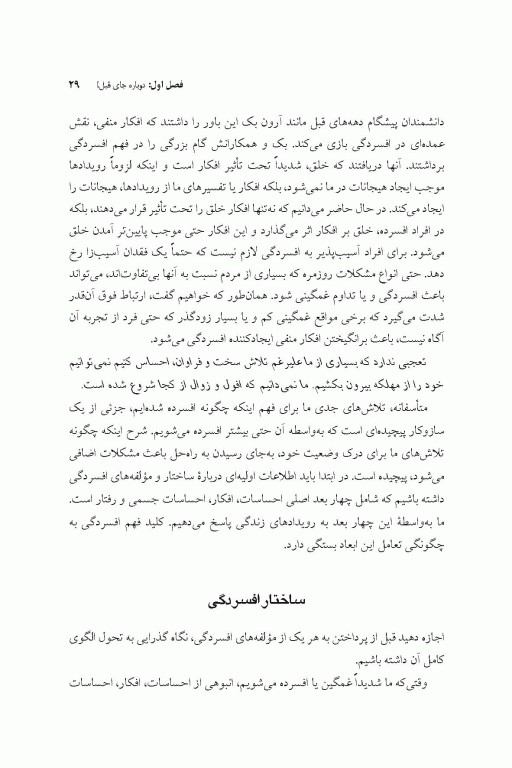 فصل اول: دوباره جای قبل! ۲۹
دانشمندان پیشگام دهه‌های قبل مانند آرون بک این باور را داشتند که افکار منفی، نقش
عمده‌ای در افسردگی بازی می‌کند. بک و همکارانش گام بزرگی را در فهم افسردگی
برداشتند. آنها دریافتند که خلق، شدیداً تحت تأثیر افکار است و اینکه لزوماً رویدادها
موجب ایجاد هیجانات در ما نمی‌شود، بلکه افکار یا تفسیرهای ما از رویدادها، هیجانات را
ایجاد می‌کند. در حال حاضر می‌دانیم که نه‌تنها افکار خلق را تحت تأثیر قرار می‌دهند، بلکه
در افراد افسرده، خلق بر افکار اثر می‌گذارد و این افکار حتی موجب پایین‌تر آمدن خلق
می‌شود. برای افراد آسیب‌پذیر به افسردگی لازم نیست که حتماً یک فقدان آسیب‌زا رخ
دهد. حتی انواع مشکلات روزمره که بسیاری از مردم نسبت به آنها بی‌تفاوت‌اند، می‌تواند
باعث افسردگی و یا تداوم غمگینی شود. همان‌طور که خواهیم گفت، ارتباط فوق آن‌قدر
شدت می‌گیرد که برخی مواقع غمگینی کم و یا بسیار زودگذر که حتی فرد از تجربه آن
آگاه نیست، باعث برانگیختن افکار منفی ایجادکننده افسردگی می‌شود.
تعجبی ندارد که بسیاری از ما علیرغم تلاش سخت و فراوان، احساس کنیم نمی‌توانیم
خود را از مهلکه بیرون بکشیم. ما نمی‌دانیم که افول و زوال از کجا شروع شده است.
متأسفانه، تلاش‌های جدی ما برای فهم اینکه چگونه افسرده شده‌ایم، جزئی از یک
سازوکار پیچیده‌ای است که به‌واسطه آن حتی بیشتر افسرده می‌شویم. شرح اینکه چگونه
تلاش‌های ما برای درک وضعیت خود، به‌جای رسیدن به راه‌حل باعث مشکلات اضافی
می‌شود، پیچیده است. در ابتدا باید اطلاعات اولیه‌ای دربارهٔ ساختار و مؤلفه‌های افسردگی
داشته باشیم که شامل چهار بعد اصلی احساسات، افکار، احساسات جسمی و رفتار است.
ما به‌واسطهٔ این چهار بعد به رویدادهای زندگی پاسخ می‌دهیم. کلید فهم افسردگی به
چگونگی تعامل این ابعاد بستگی دارد.
ساختار افسردگی
اجازه دهید قبل از پرداختن به هر یک از مؤلفه‌های افسردگی، نگاه گذرایی به تحول الگوی
کامل آن داشته باشیم.
وقتی‌که ما شدیداً غمگین یا افسرده می‌شویم، انبوهی از احساسات، افکار، احساسات